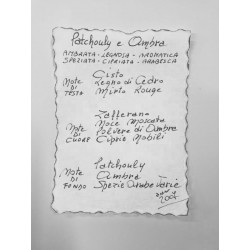 Patchouly e Ambra
AMBRATA - LEGNOSA - AROMATICA
SPEZIATA - CIPRIATA - ARABESCA
Cisto
NOTE Legno di Cedro
DI
TESTA Mirto Rouge
Zafferano
NOTE Noce Moscata
DI Polvere di Ambra
CUORE Ciprie Nobili
Patchouly
NOTE Ambra
DI
FONDO Spezie Ambe Varie
2007